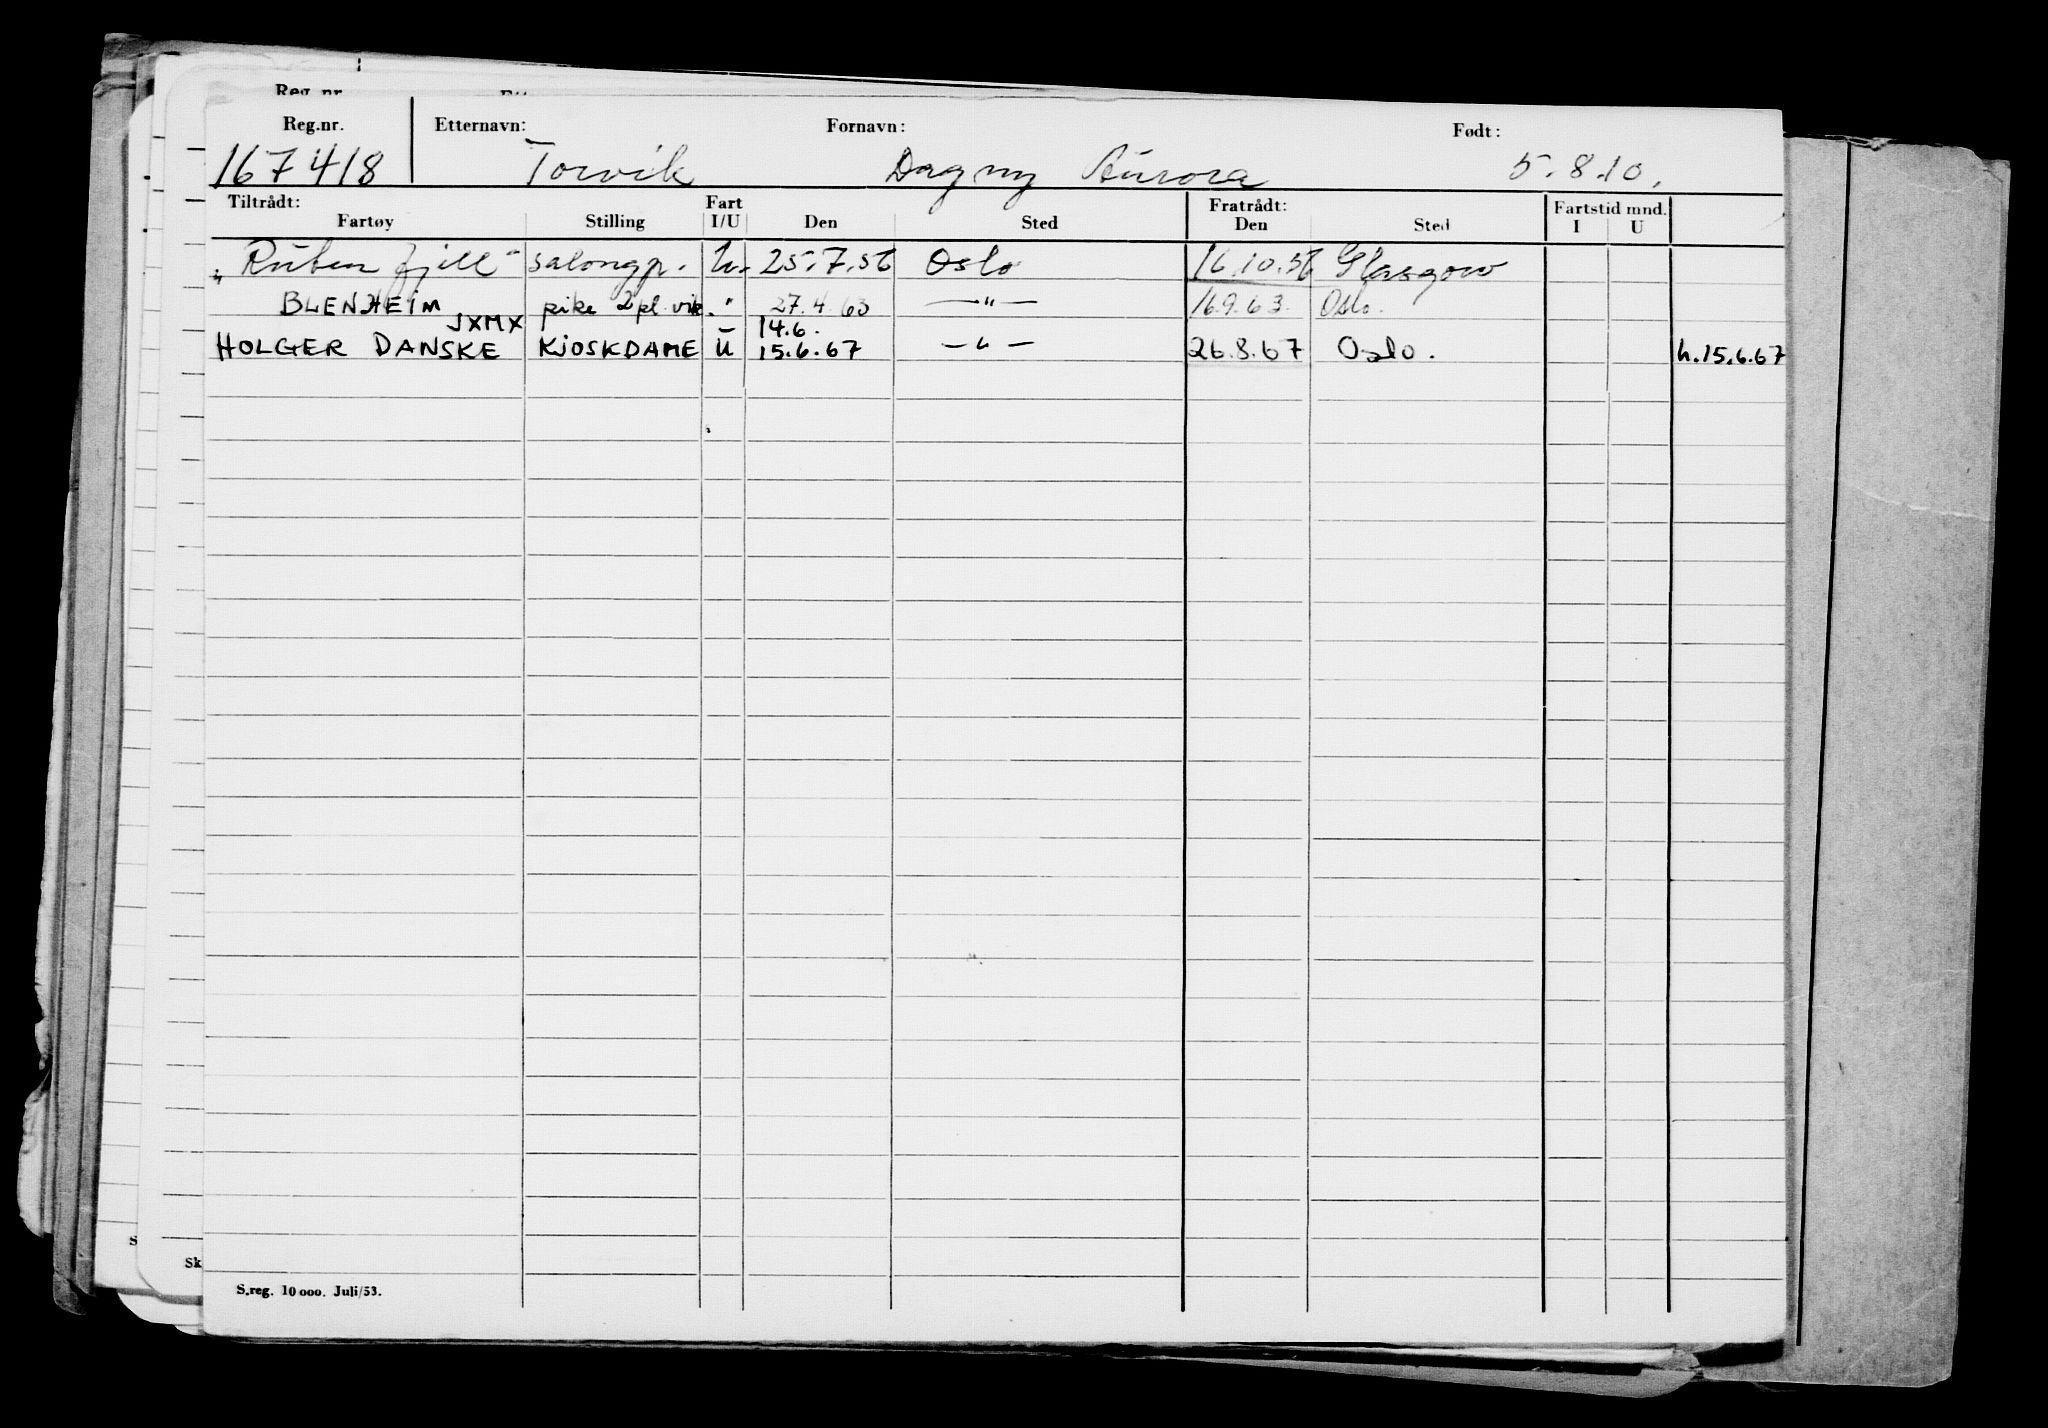 Reg. nr.
Reg.nr. Etternavn: Fornavn: Født:
167418 Torvik Dagny Aurora 5.8.10.
Tiltrådt: Fart Fratrådt: Fartstid mnd.
Fartøy Stilling I/U Den Sted Den Sted I U
"Rubenfjell" salongp. U. 25.7.56 Oslo 16.10.56 Glasgow
BLENHEIM pike 2 pl. vik. " 27.4.63 —"— 16.9.63. Oslo.
JXMX 14.6.
HOLGER DANSKE KJOSKDAME U 15.6.67 —"— 26.8.67 Oslo. h.15.6.67
Sk
S.reg. 10 000. Juli/53.